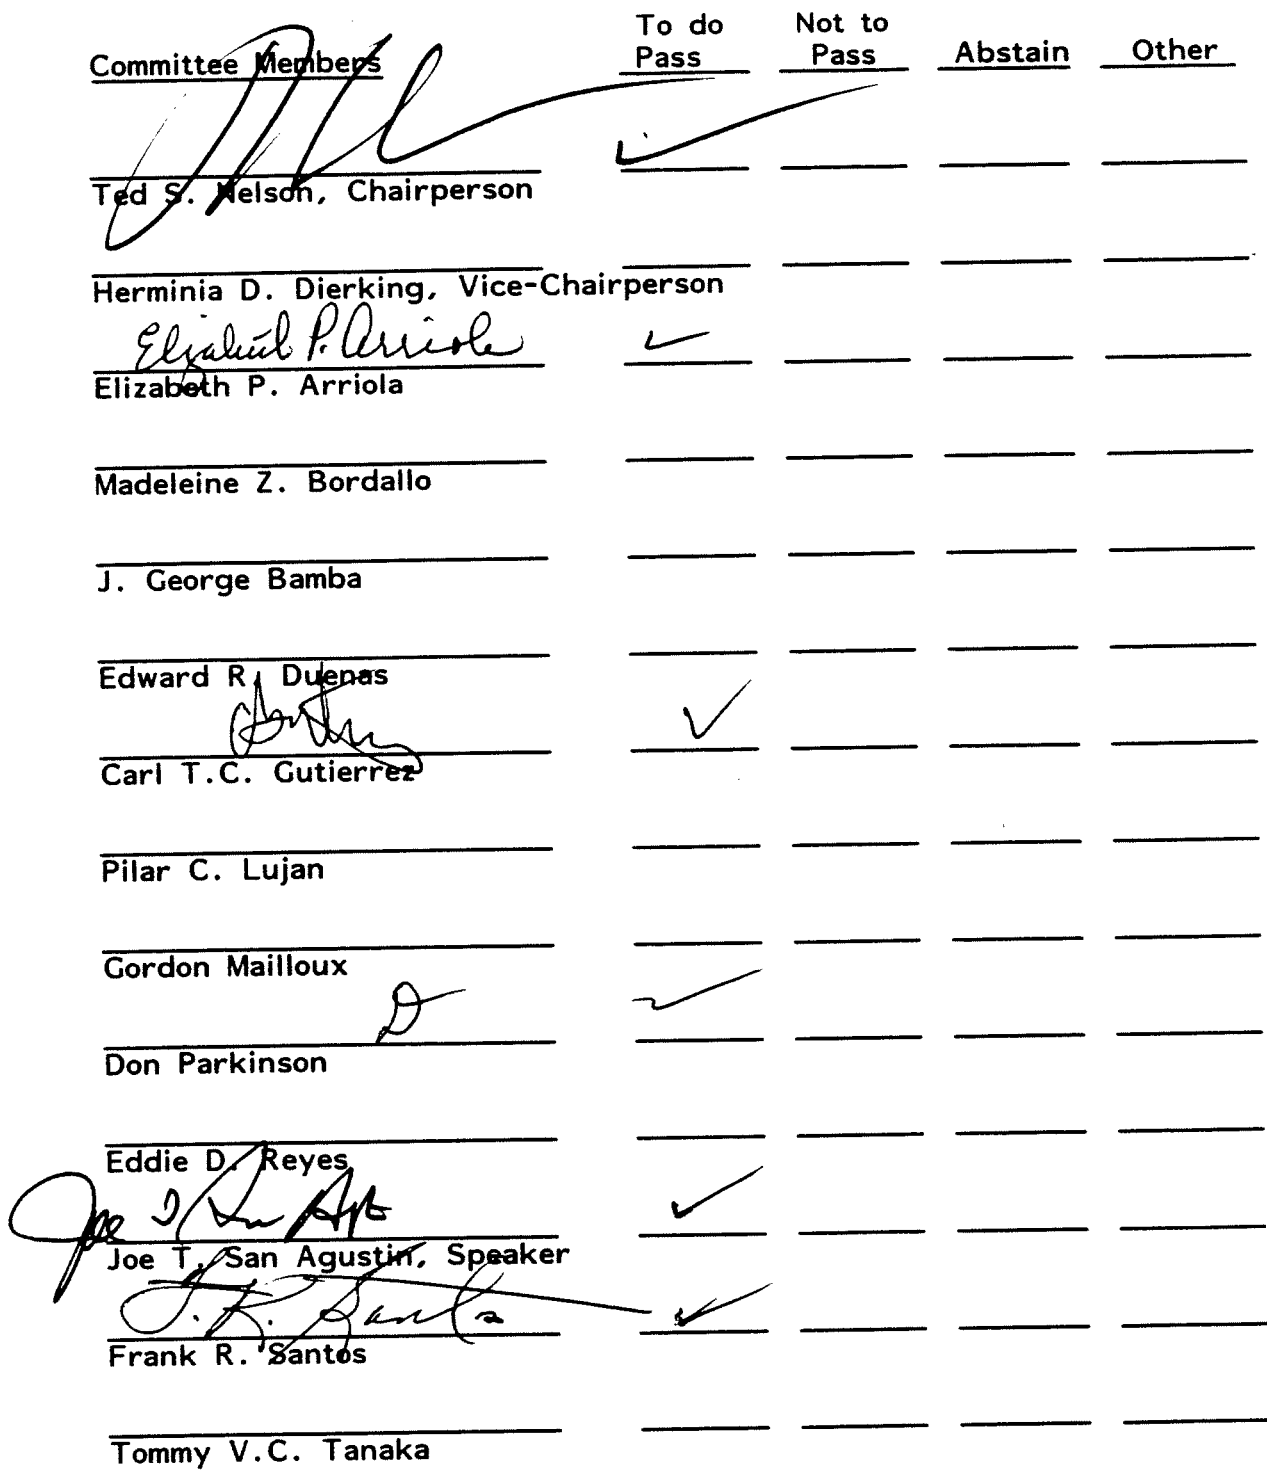 To do Not to
Committee Members Pass Pass Abstain Other
Ted S. Nelson, Chairperson
Herminia D. Dierking, Vice-Chairperson
Elizabeth P. Arriola
Elizabeth P. Arriola
Madeleine Z. Bordallo
J. George Bamba
Edward R. Duenas
Carl T.C. Gutierrez
Pilar C. Lujan
Gordon Mailloux
Don Parkinson
Eddie D. Reyes
Joe T. San Agt
Joe T. San Agustin, Speaker
F. R. Santos
Frank R. Santos
Tommy V.C. Tanaka